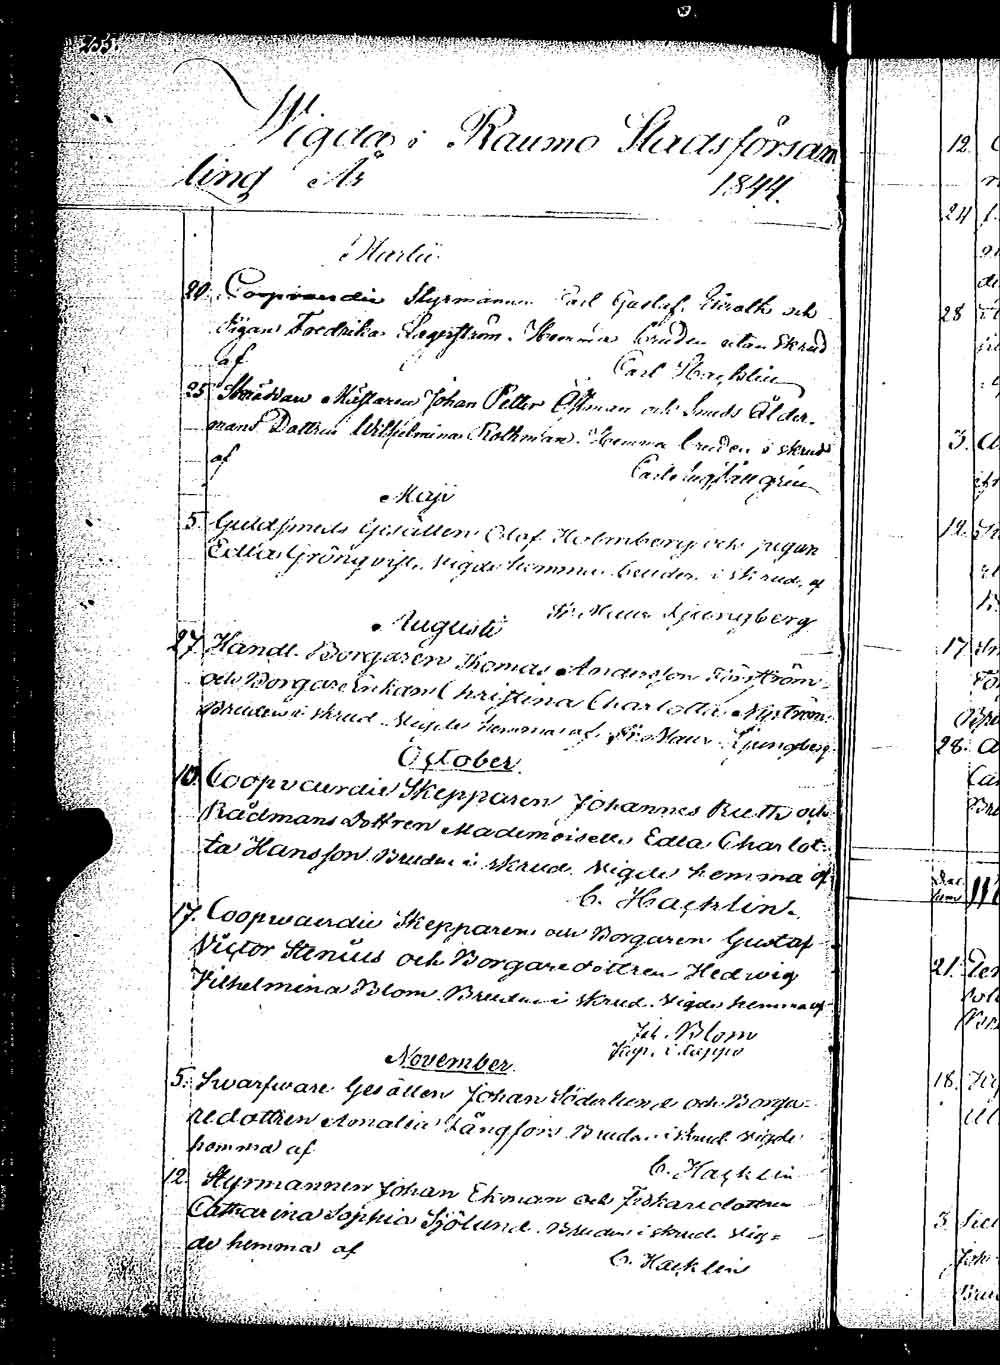 Wigda i Raumo Stadsförsam
ling År 1844.
Martii
20. Coopvaerdie Styrmannen Carl Gustaf och
Pigan Fredrika Lagerström. Hemma Bruden utan Skrud
af
Carl Hacklin
25 Mästaren Johan Petter Öhman och Smeds Ålder-
mans Dottren Wilhelmina Rothman. Hemma bruden i skrud
af
Carl
Maji
5. Guldsmeds Gesällen Olof Holmberg och pigan
Edla Grönqvist. vigde hemma bruden i skrud. af
Fr. Maur. Ljungberg
Augusti
27. Handl. Borgaren Thomas Andersson
och Borgare Enkan Christina Charlotta Nyström.
Bruden i skrud. Vigde hemma af Fr. Maur. Ljungberg
October
10. Coopvaerdie Skepparen Johannes Ruth och
Rådmans Dottren Mademoiselle Edla Charlot-
ta Hansson. Bruden i skrud. vigde hemma af
C. Hacklin.
17. Coopvaerdie Skepparen och Borgaren Gustaf
Victor Stenius och Borgaredottren Hedwig
Vilhelmina Blom. Bruden i skrud. vigde hemma af
Joh. Blom
November
5. Swarfware Gesällen Johan Söderlund och Borga-
redottren Amalia Långfors. Bruden i skrud vigde
hemma af
C. Hacklin
12. Styrmannen Johan Ekman och Fiskaredottren
Catharina Sophia Sjölund. Bruden i skrud. vig-
de hemma af
C. Hacklin
12.
24
28
3.
12.
17
28.
21.
18.
3.